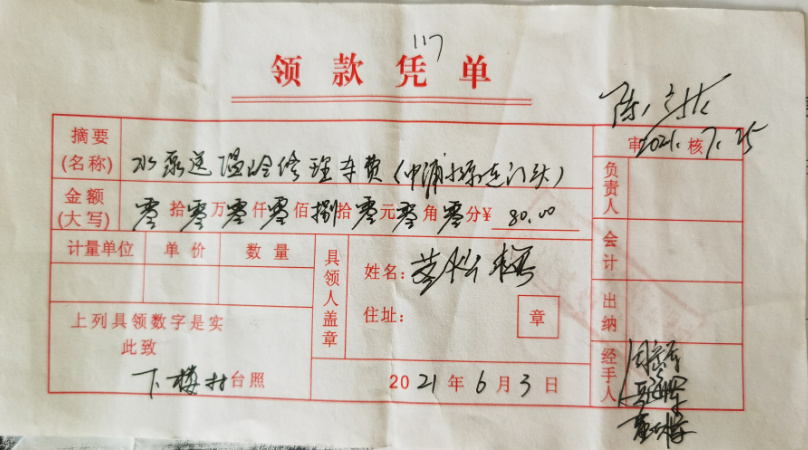 117
领款凭单
2021.7.25
摘要(名称) 水泵送温岭修理车费(中浦
金额(大写) 零拾零万零仟零佰捌拾零元零角零分¥ 80.00
审 核
负责人
会计
出纳
经手人
计量单位 单价 数量
具领人盖章
姓名:
住址:
章
上列具领数字是实
此致
下楼村台照
2021年6月3日